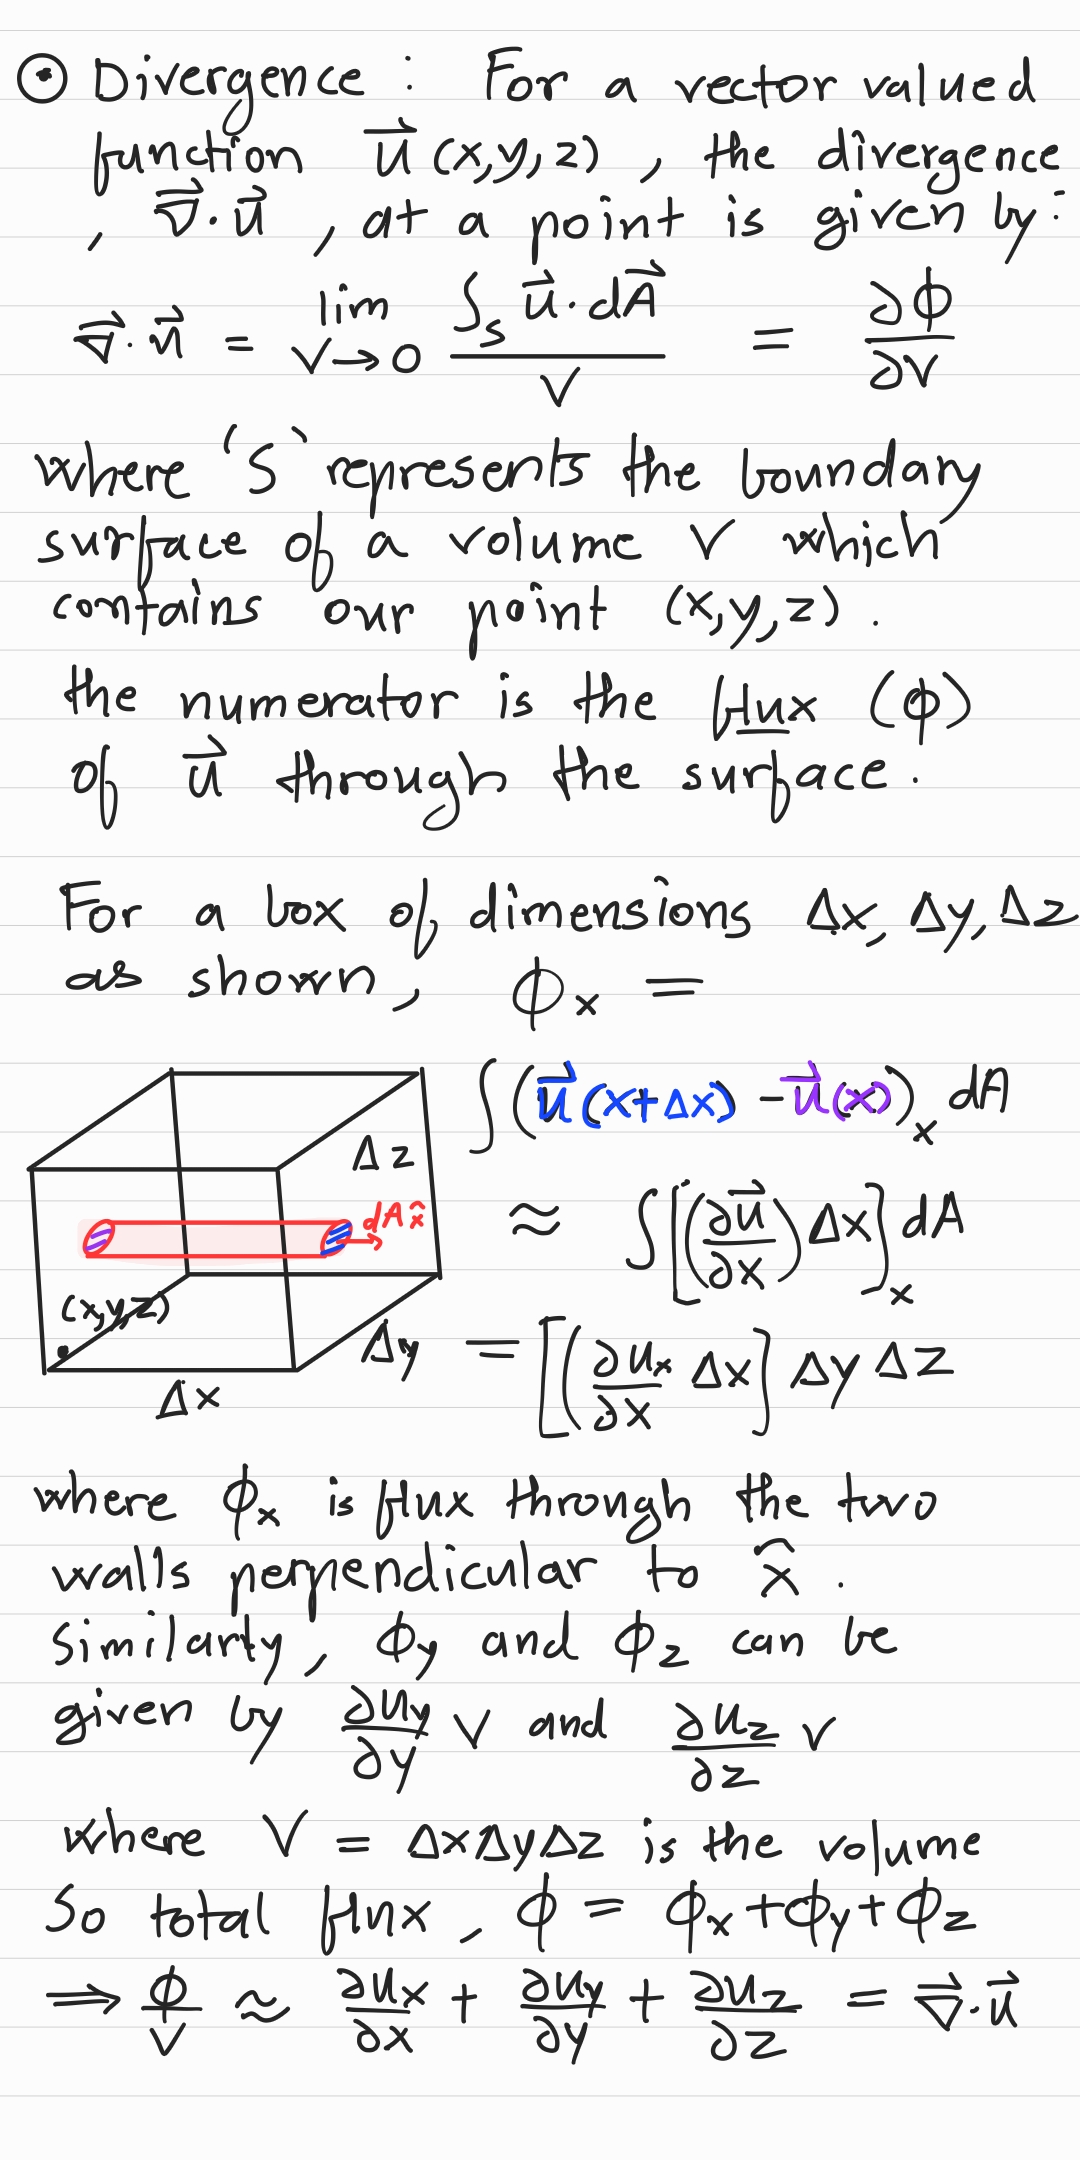 ⊙ Divergence : For a vector valued
function u⃗ (x,y,z) , the divergence
, ∇⃗·u⃗ , at a point is given by:
∇⃗·u⃗ = lim V→0 ∫s u⃗·dA⃗ / V = ∂ϕ/∂V
where 'S' represents the boundary
surface of a volume V which
contains our point (x,y,z).
the numerator is the flux (ϕ)
of u⃗ through the surface.
For a box of dimensions Δx, Δy, Δz
as shown, ϕx =
∫(u⃗(x+Δx) - u⃗(x))x dA
Δz
dA x̂
≈ ∫[(∂u⃗/∂x)Δx]x dA
(x,y,z)
Δy
Δx
= [(∂ux/∂x Δx] Δy Δz
where ϕx is flux through the two
walls perpendicular to x̂ .
similarly, ϕy and ϕz can be
given by ∂uy/∂y V and ∂uz/∂z V
where V = ΔxΔyΔz is the volume
So total flux, ϕ = ϕx+ϕy+ϕz
⟹ ϕ/V ≈ ∂ux/∂x + ∂uy/∂y + ∂uz/∂z = ∇⃗·u⃗